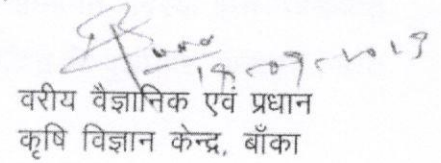 18-09-2019
वरीय वैज्ञानिक एवं प्रधान
कृषि विज्ञान केन्द्र, बाँका